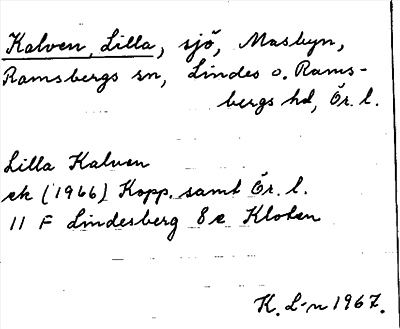 Kalven, Lilla, sjö, Masbyn,
Ramsbergs sn, Lindes o. Rams-
bergs hd, Ör. l.
Lilla Kalven
ek (1966) Kopp. samt Ör. l.
11 F Lindesberg 8 e Kloten
K. L-n 1967.